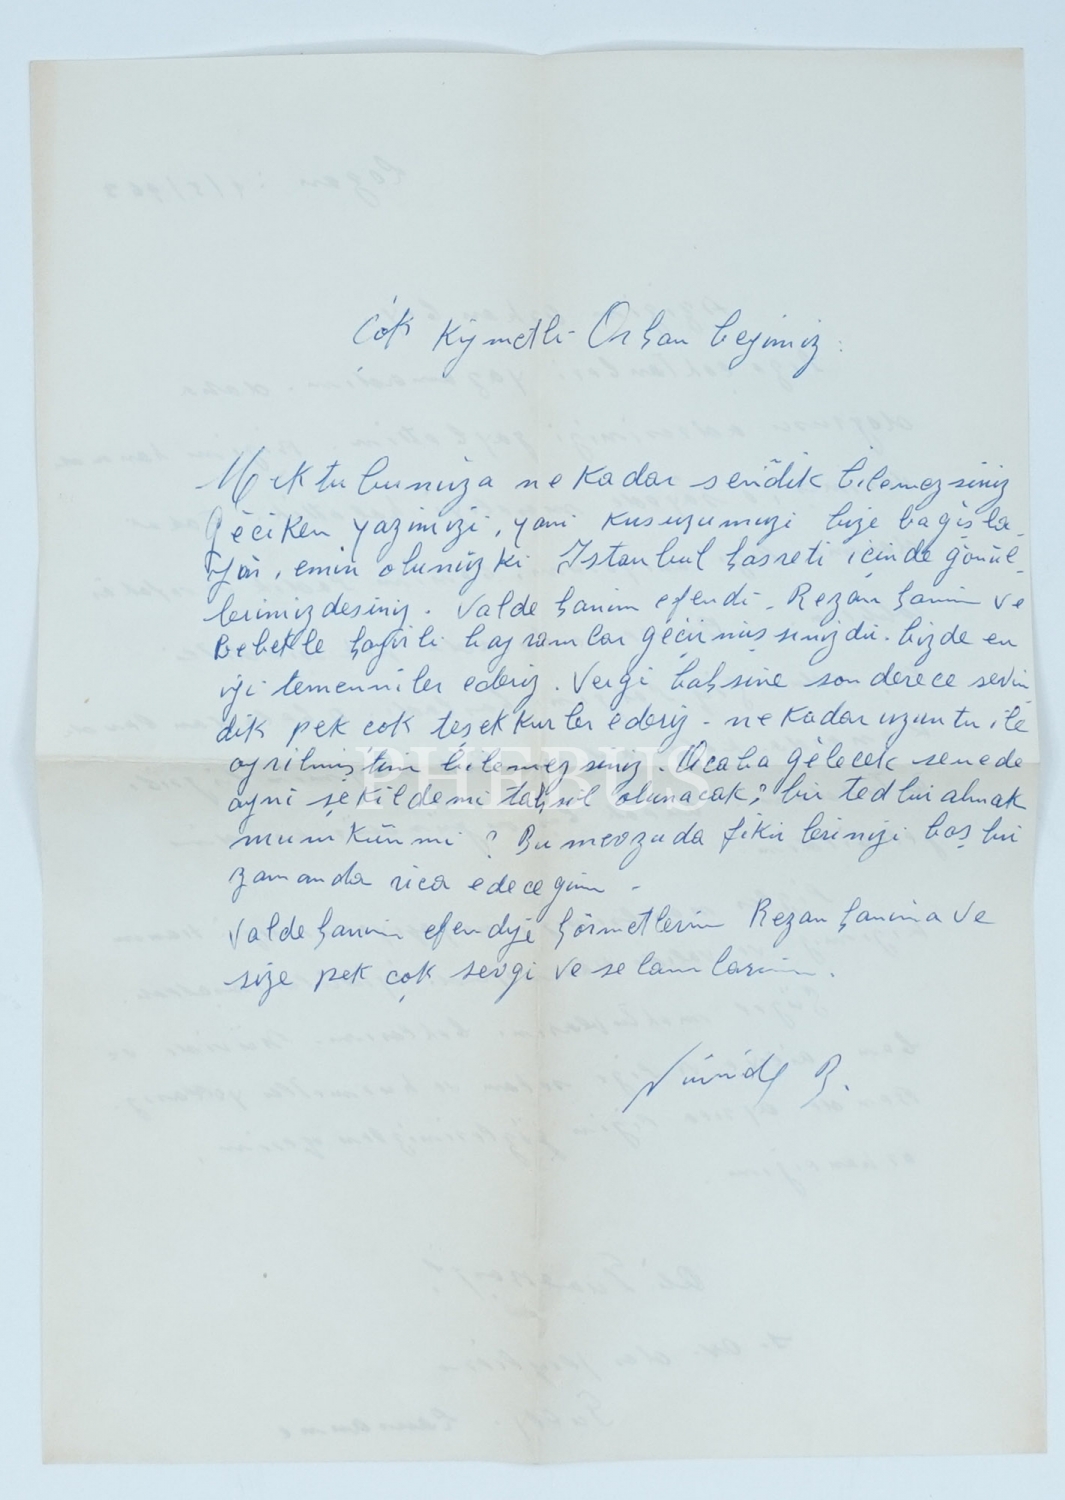 Çok Kıymetli Orhan beyimiz :
Mektubunuza ne kadar sevidik bilemezsiniz
Geciken yazimizi, yani kusurumuzi bize bağışla-
yın, emin olunuzki İstanbul hasreti içinde gönül-
lerimizdesiniz. Valde hanım efendi - Rezan hanım ve
Bebekle hayırlı bayramlar geçirmişsinizdir. bizde en
iyi temenniler ederiz. Vergi bahsine son derece sevin
dik pek çok teşekkürler ederiz - ne kadar uzuntu ile
ayrilmiştim bilemezsiniz. Acaba gelecek senede
ayni şekildemi tahsil olunacak? bir tedbir almak
mumkünmi ? Bu mevzuda fikirlerinizi boş bir
zamanda rica edeceğim -
Valde hanım efendiye hörmetlerim Rezan hanıma ve
size pek çok sevgi ve selamlarım.
Nüvide B.
PHEBUS